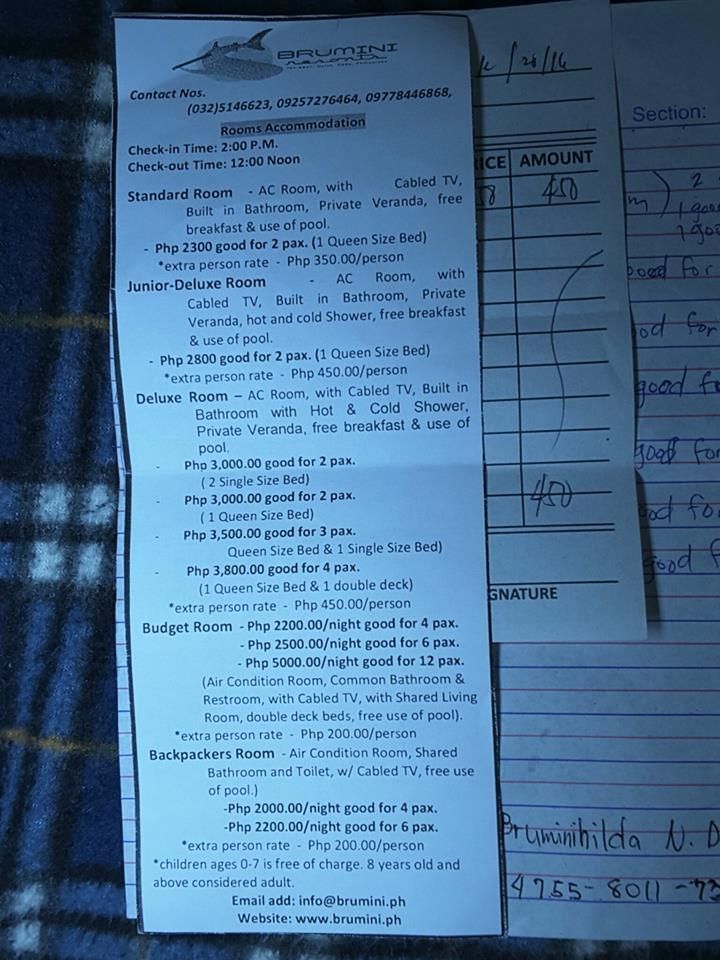 BRUMINI
Contact Nos.
(032)5146623, 09257276464, 09778446868,
Rooms Accommodation
Check-in Time: 2:00 P.M.
Check-out Time: 12:00 Noon
Standard Room - AC Room, with Cabled TV,
Built in Bathroom, Private Veranda, free
breakfast & use of pool.
- Php 2300 good for 2 pax. (1 Queen Size Bed)
*extra person rate - Php 350.00/person
Junior-Deluxe Room - AC Room, with
Cabled TV, Built in Bathroom, Private
Veranda, hot and cold Shower, free breakfast
& use of pool.
- Php 2800 good for 2 pax. (1 Queen Size Bed)
*extra person rate - Php 450.00/person
Deluxe Room – AC Room, with Cabled TV, Built in
Bathroom with Hot & Cold Shower,
Private Veranda, free breakfast & use of
pool.
- Php 3,000.00 good for 2 pax.
( 2 Single Size Bed)
- Php 3,000.00 good for 2 pax.
( 1 Queen Size Bed)
- Php 3,500.00 for 3 pax.
Queen Size Bed & 1 Single Size Bed)
- Php 3,800.00 for 4 pax.
(1 Queen Size Bed & 1 double deck)
*extra person rate - Php 450.00/person
Budget Room - Php 2200.00/night good for 4 pax.
- Php 2500.00/night good for 6 pax.
- Php 5000.00/night good for 12 pax.
(Air Condition Room, Common Bathroom &
Restroom, with Cabled TV, with Shared Living
Room, double deck beds, free use of pool).
*extra person rate - Php 200.00/person
Backpackers Room - Air Condition Room, Shared
Bathroom and Toilet, w/ Cabled TV, free use
of pool.)
-Php 2000.00/night good for 4 pax.
-Php 2200.00/night good for 6 pax.
*extra person rate - Php 200.00/person
*children ages 0-7 is free of charge. 8 years old and
above considered adult.
Email add: info@brumini.ph
Website: www.brumini.ph
/28/16
ICE AMOUNT
450
450
GNATURE
Section:
2
1 good
1 goo
good for
od for
good fo
good for
od for
good f
Bruminihilda N. D
4755-8011-73